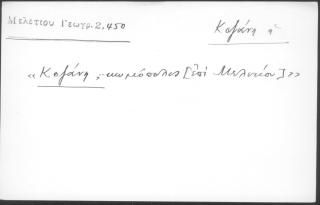 Μελετίου Γεωγρ. 2, 450
Κοζάνη ἡ
« Κοζάνη, κωμόπολις [ἐπὶ Μελετίου] »